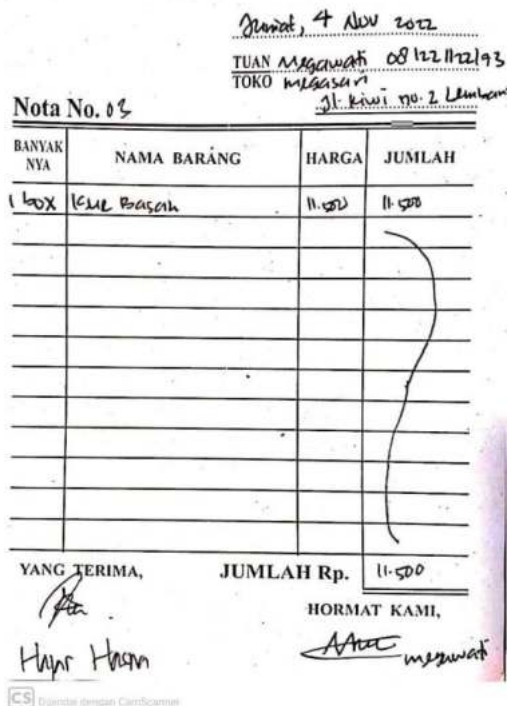 Jumat, 4 Nov 2022
TUAN Megawati
TOKO megasari
Jl. Kiwi no. 2 Lembang
Nota No. 03
BANYAK NYA NAMA BARANG HARGA JUMLAH
1 box Kue Basah 11.500 11.500
JUMLAH Rp. 11.500
YANG TERIMA, HORMAT KAMI,
megawati
CS Dipindai dengan CamScanner